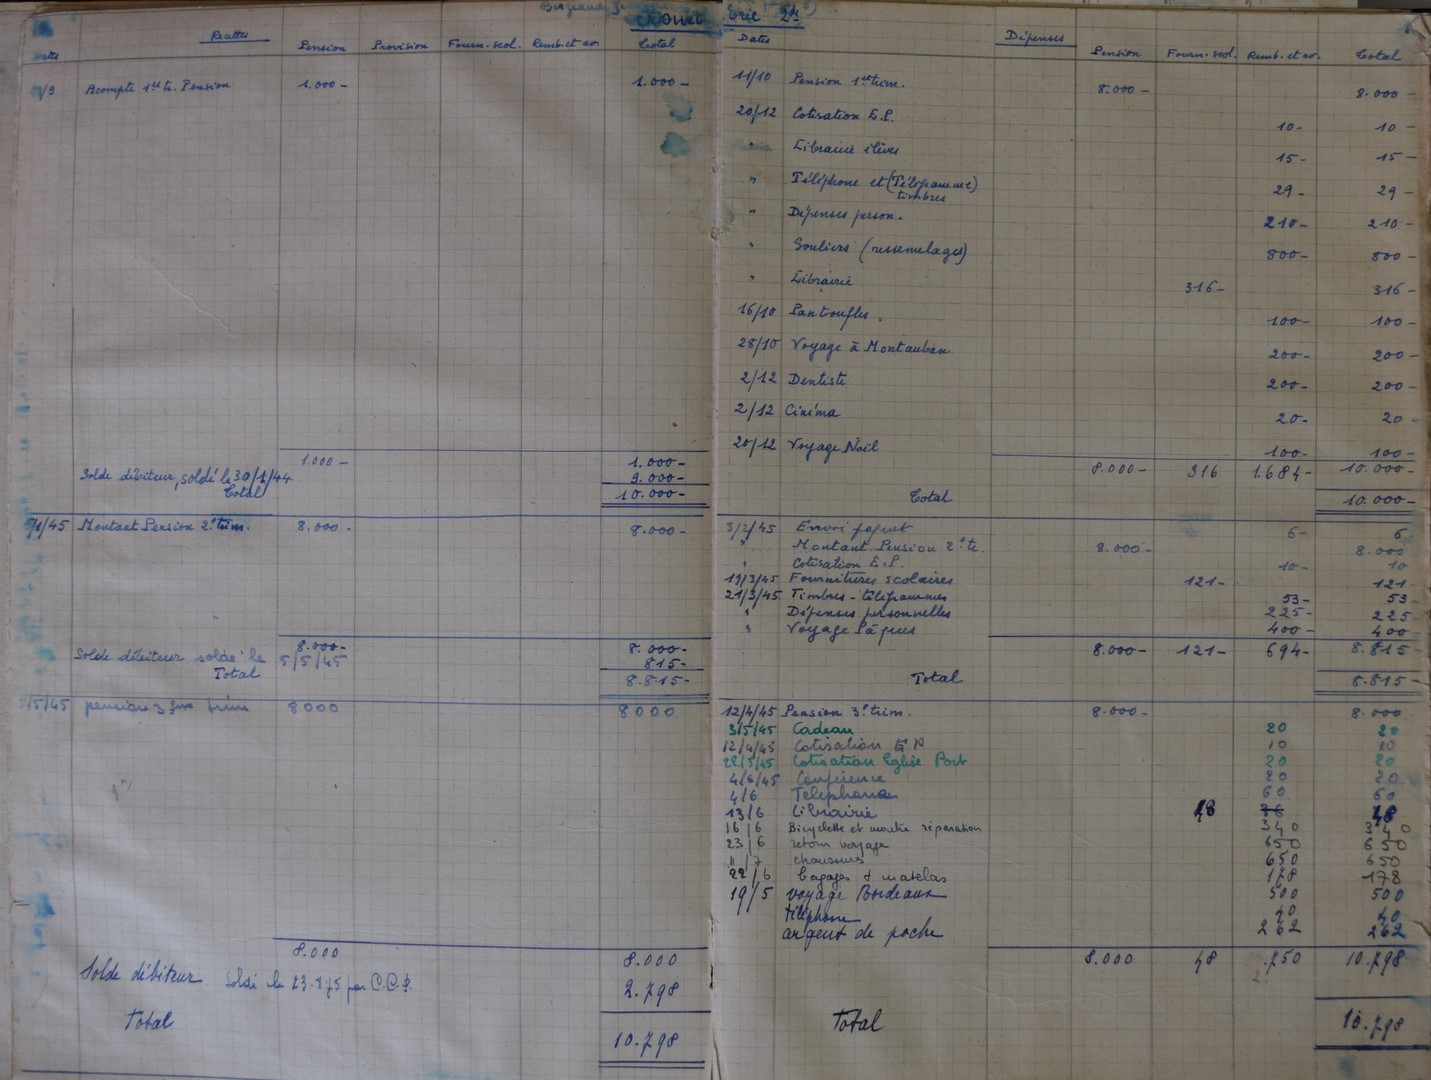 Eric 2de
Recettes
Pension Provision Fourn. scol. Remb. et av. Total
/9 Acompte 1er te. Pension 1.000 - 1.000 -
1.000 - 1.000 -
Solde débiteur, soldé le 30/1/44 9.000 -
Total 10.000 -
/1/45 Montant Pension 2e trim. 8.000 - 8.000 -
8.000 - 8.000 -
Solde débiteur soldé le 5/5/45 815 -
Total 8.815 -
/5/45 pension 3ème trim 8000 8000
8.000 8.000
Solde débiteur Soldé le par C.C.P. 2.798
Total 10.798
Dates Dépenses Pension Fourn. scol. Remb. et av. Total
11/10 Pension 1er trim. 8.000 - 8.000 -
20/12 Cotisation E.P. 10 - 10 -
Librairie élèves 15 - 15 -
" Téléphone et (Télégramme) 29 - 29 -
timbres
" Dépenses person. 210 - 210 -
" Souliers (ressemelages) 800 - 800 -
" Librairie 316 - 316 -
16/10 Pantoufles. 100 - 100 -
28/10 Voyage à Montauban 200 - 200 -
2/12 Dentiste 200 - 200 -
2/12 Cinéma 20 - 20 -
20/12 Voyage Noël 100 - 100 -
8.000 - 316 1.684 - 10.000 -
Total 10.000 -
3/2/45 Envoi paquet 6 - 6
" Montant Pension 2e te. 8.000 - 8.000
" Cotisation E.P. 10 - 10
19/3/45 Fournitures scolaires 121 - 121 -
21/3/45 Timbres - télégrammes 53 - 53 -
" Dépenses personnelles 225 - 225
" Voyage Pâques 400 - 400 -
8.000 - 121 - 694 - 8.815 -
Total 8.815 -
12/4/45 Pension 3e trim. 8.000 - 8.000
3/5/45 Cadeau 20 20
12/4/45 Cotisation E P 10 10
28/5/45 Cotisation Eglise Port 20 20
4/6/45 Conférence 20 20
4/6 Telephone 60 60
13/6 Librairie 48 48
16/6 Bicyclette et montre réparation 340 340
23/6 retour voyage 650 650
"/7 chaussures 650 650
22/6 bagages + matelas 178 178
19/5 voyage Bordeaux 500 500
téléphone 40 40
argent de poche 262 262
8.000 48 750 10.798
Total 10.798